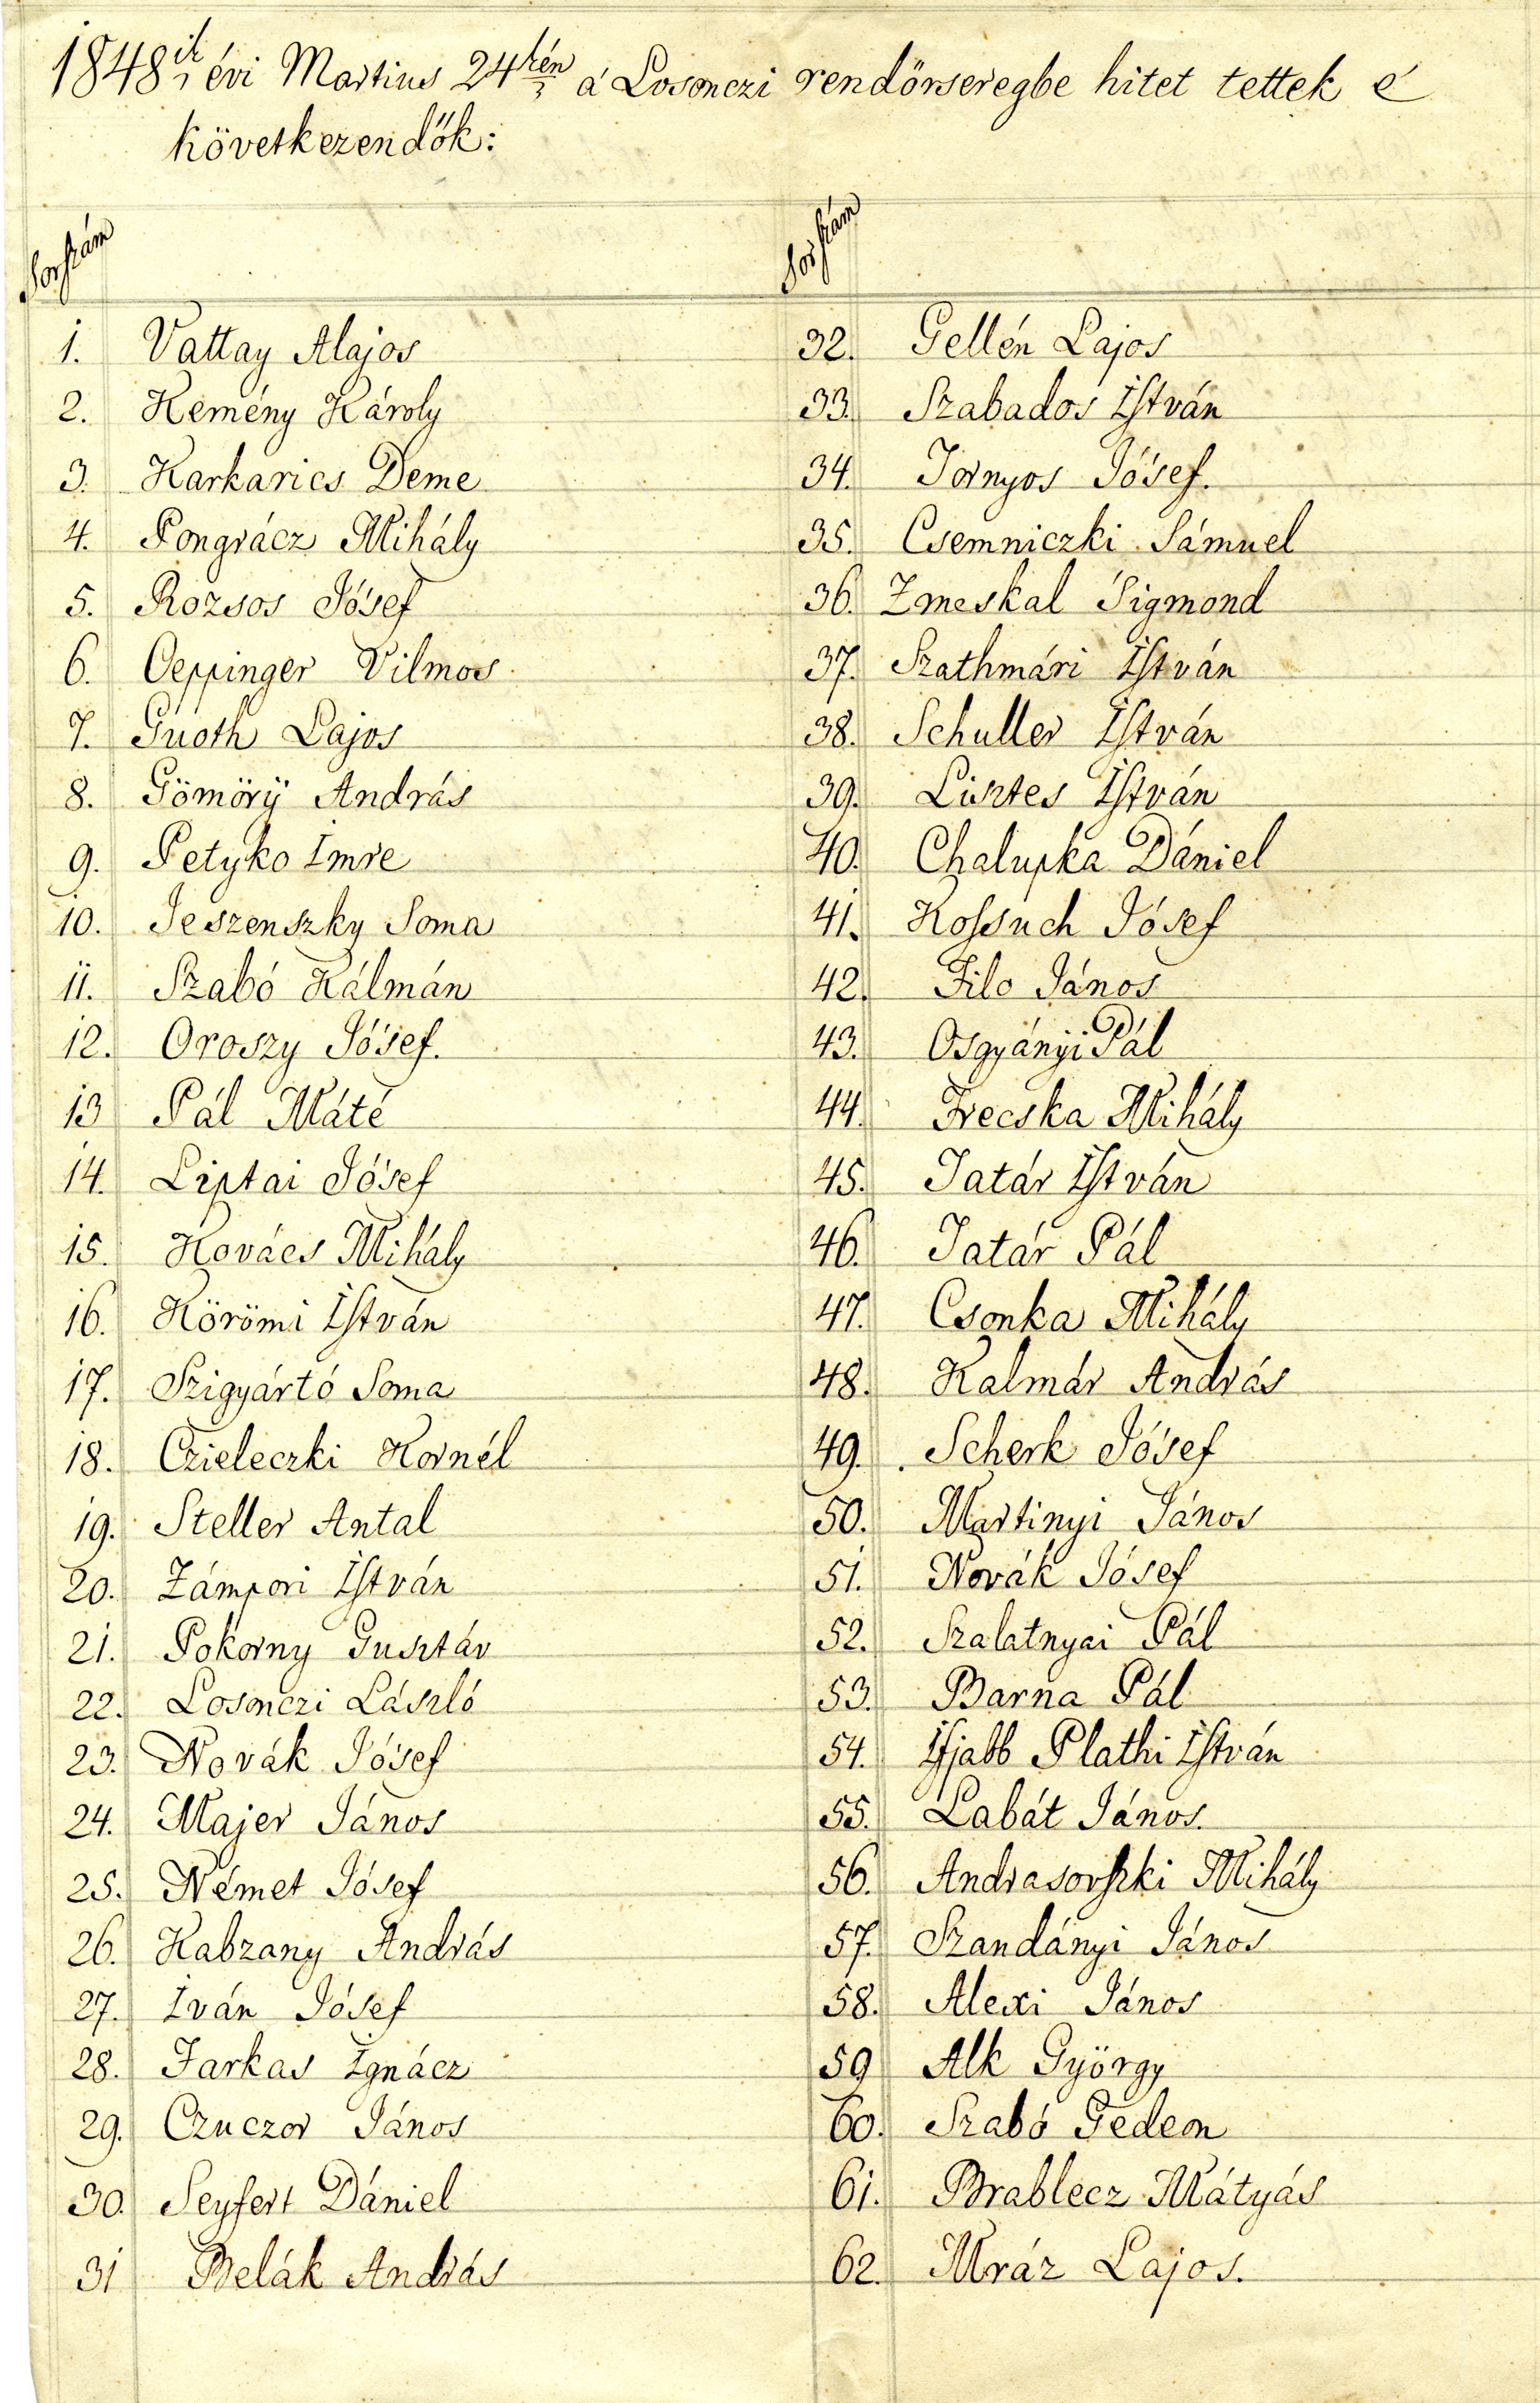 1848ik évi Martius 24kén a' Losonczi rendőrseregbe hitet tettek e'
következendők:
Sorszám
1. Vattay Alajos
2. Kemény Károly
3. Karkarics Deme
4. Pongrácz Mihály
5. Rozsos Jósef
6. Oeppinger Vilmos
7. Guoth Lajos
8. Gömörÿ András
9. Petyko Imre
10. Jeszenszky Soma
11. Szabó Kálmán
12. Oroszy Jósef.
13 Pál Máté
14. Liptai Jósef
15. Kovács Mihály
16. Körömi István
17. Szigyártó Soma
18. Czieleczki Kornél
19. Steller Antal
20. Zámpori István
21. Pokorny Gusztáv
22. Losonczi László
23. Novák Jósef
24. Majer János
25. Német Jósef
26. Kabzany András
27. Iván Jósef
28. Farkas Ignácz
29. Czuczor János
30. Seyfert Dániel
31 Belák András
Sorszám
32. Gellén Lajos
33. Szabados István
34. Tornyos Jósef.
35. Csemniczki Sámuel
36. Zmeskal Sigmond
37. Szathmári István
38. Schuller István
39. Lisztes István
40. Chalupka Dániel
41. Kossuch Jósef
42. Filo János
43. Osgyányi Pál
44. Frecska Mihály
45. Tatár István
46. Tatár Pál
47. Csonka Mihály
48. Kalmár András
49. Scherk Jósef
50. Martinyi János
51. Novák Jósef
52. Szalatnyai Pál
53. Barna Pál
54. Ifjabb Plathi István
55. Labát János.
56. Andrasovszki Mihály
57. Szandányi János
58. Alexi János
59 Alk György
60. Szabó Gedeon
61. Brablecz Mátyás
62. Mráz Lajos.